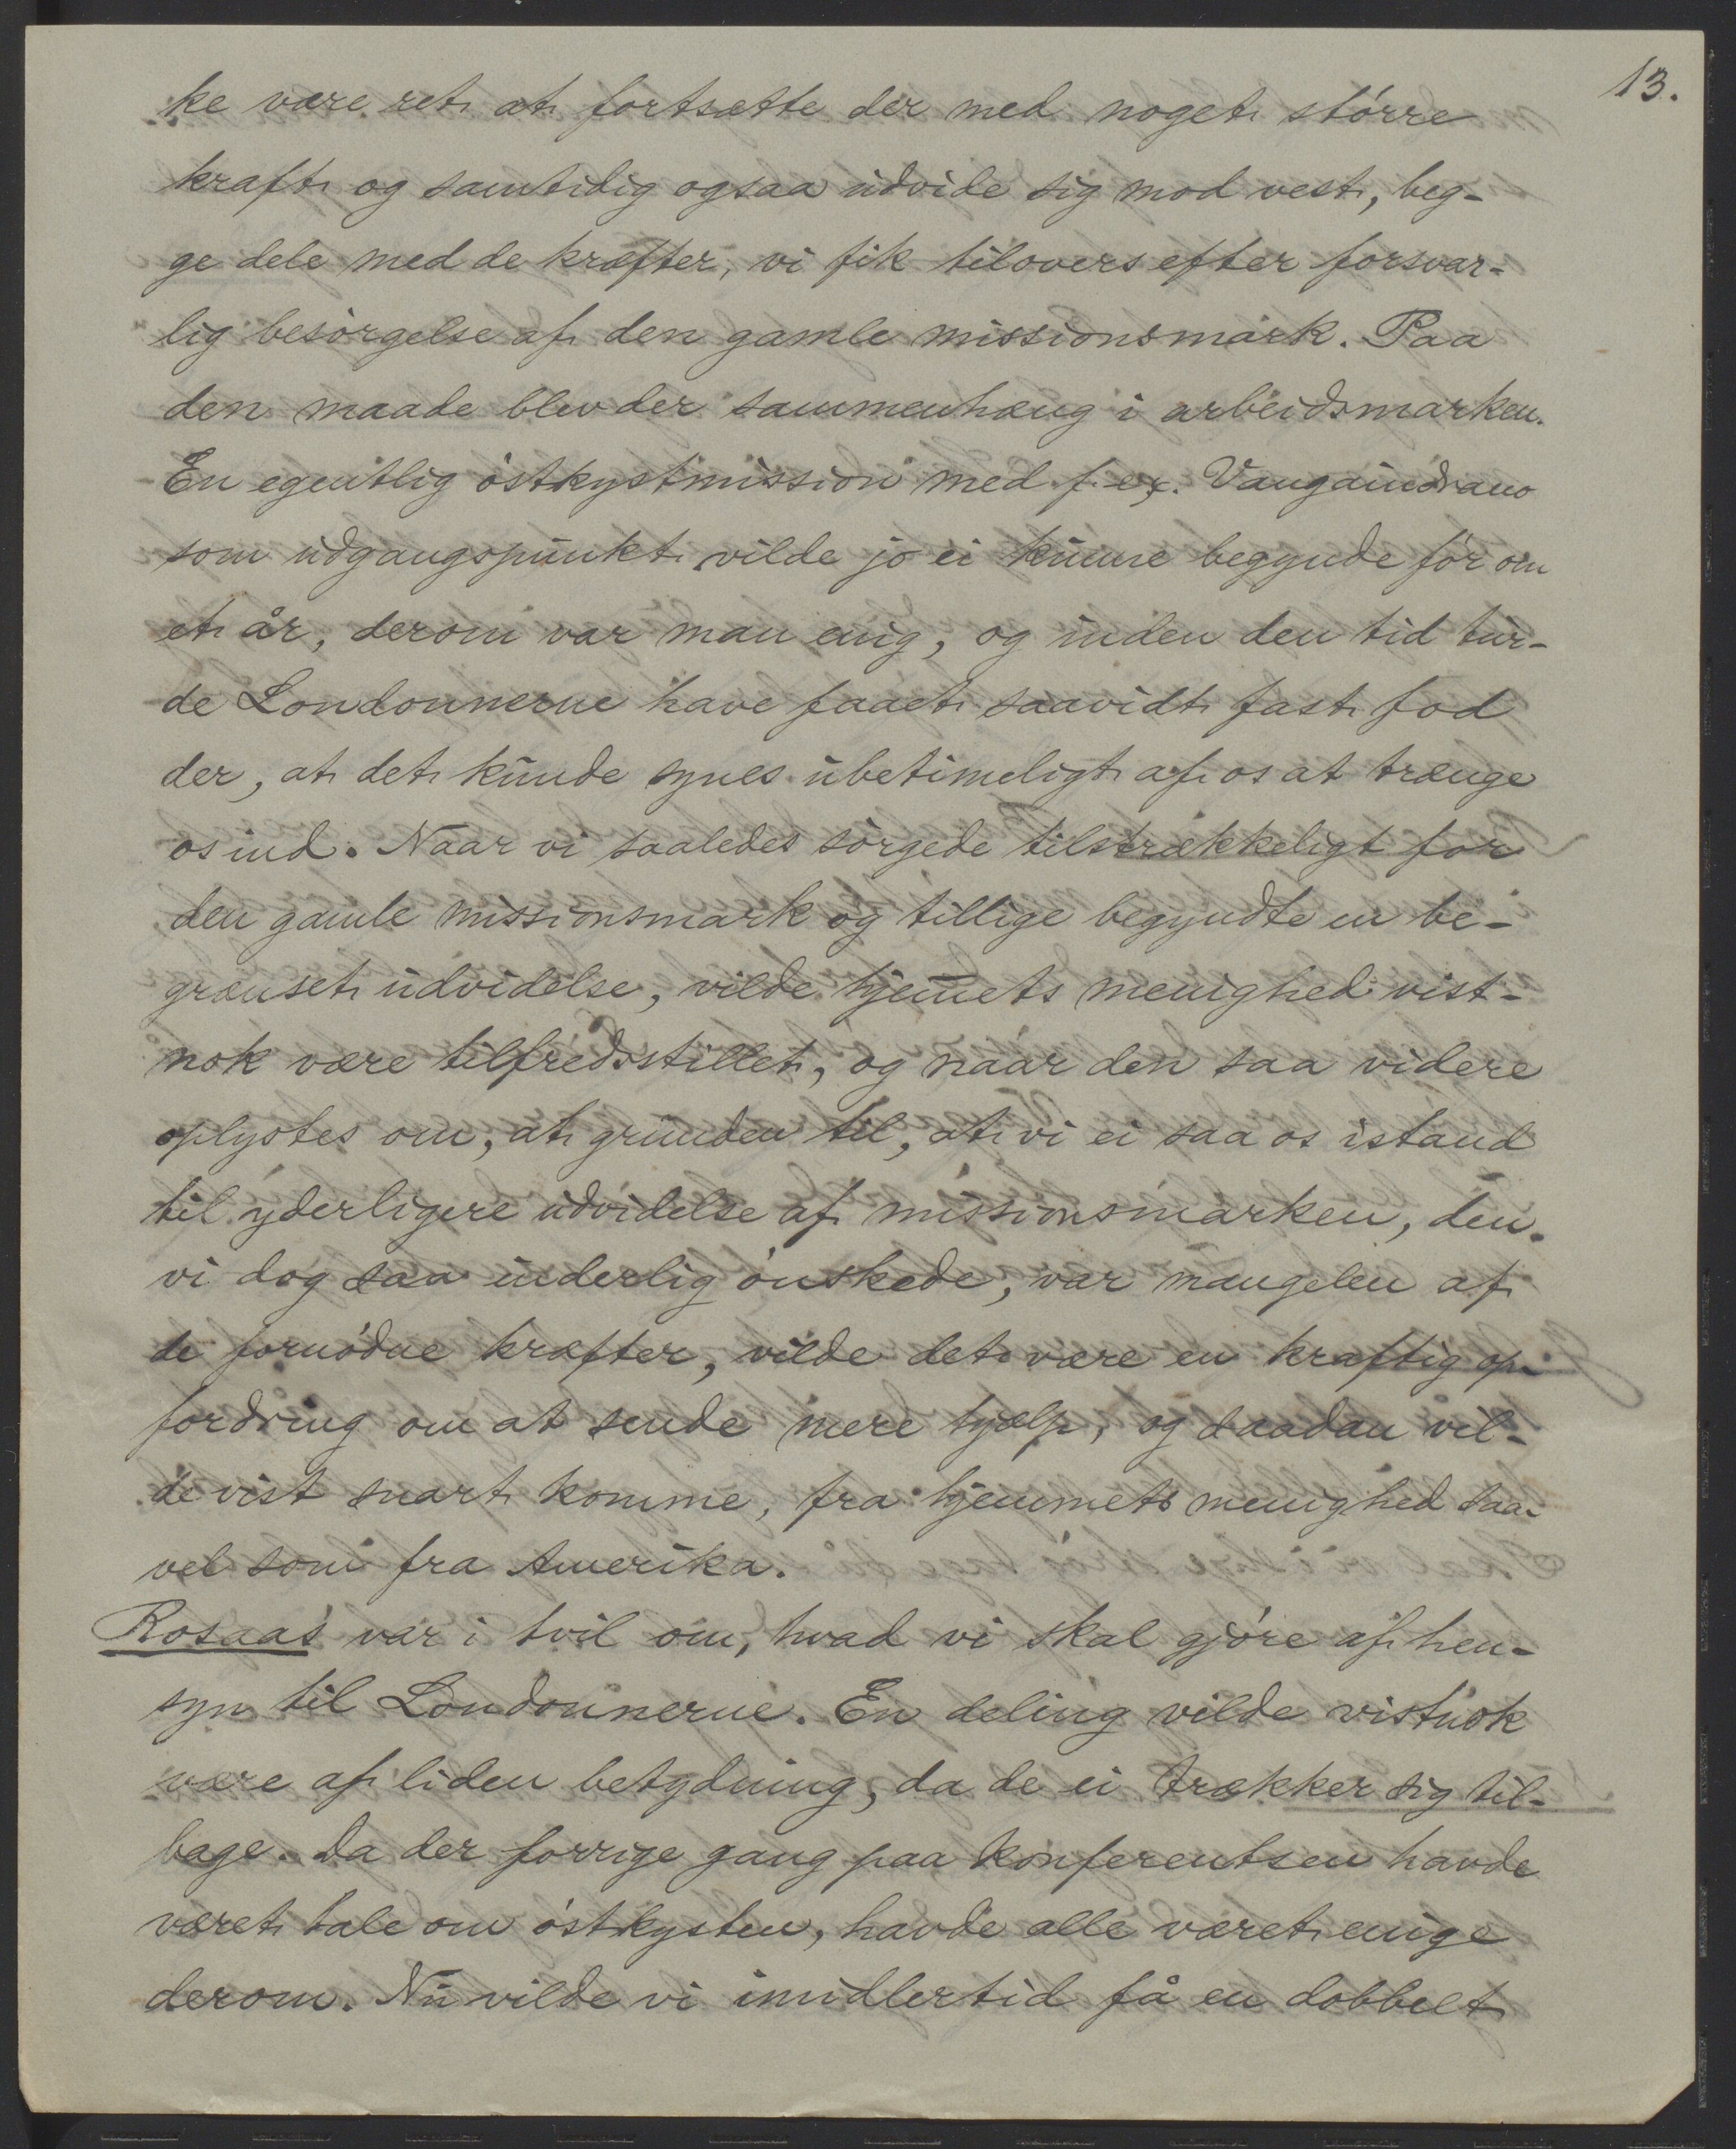 13.
ke være ret at fortsætte der med noget større
kraft og samtidig ogsaa udvide sig mod vest, beg-
ge dele med de kræfter, vi fik tilovers efter forsvar-
lig besørgelse af den gamle missionsmark. Paa
den maade blev der sammenhæng i arbeidsmarken.
En egentlig østkystmission med f. ex. Vangaindrano
som udgangspunkt vilde jo ei kunne begynde før om
et år, derom var man enig, og inden den tid tur-
de Londonnerne have faaet saavidt fast fod
der, at det kunde synes ubetimeligt af os at trænge
os ind. Naar vi saaledes sørgede tilstrækkeligt for
den gamle missionsmark og tillige begyndte en be-
grænset udvidelse, vilde hjem̅ets menighed vist-
nok være tilfredsstillet, og naar den saa videre
oplystes om, at grunden til, at vi ei saa os istand
til yderligere udvidelse af missionsmarken, den
vi dog saa inderlig ønskede, var mangelen af
de fornødne kræfter, vilde det være en kraftig op-
fordring om at sende mere hjælp, og saadan vil-
de vist snart komme, fra hjemmets menighed saa-
vel som fra Amerika.
Rosaas var i tvil om, hvad vi skal gjøre af hen-
syn til Londonnerne. En deling vilde vistnok
være af liden betydning, da de ei trækker sig til-
bage. Da der forrige gang paa konferentsen havde
været tale om østkysten, havde alle været enige
derom. Nu vilde vi imidlertid få en dobbelt